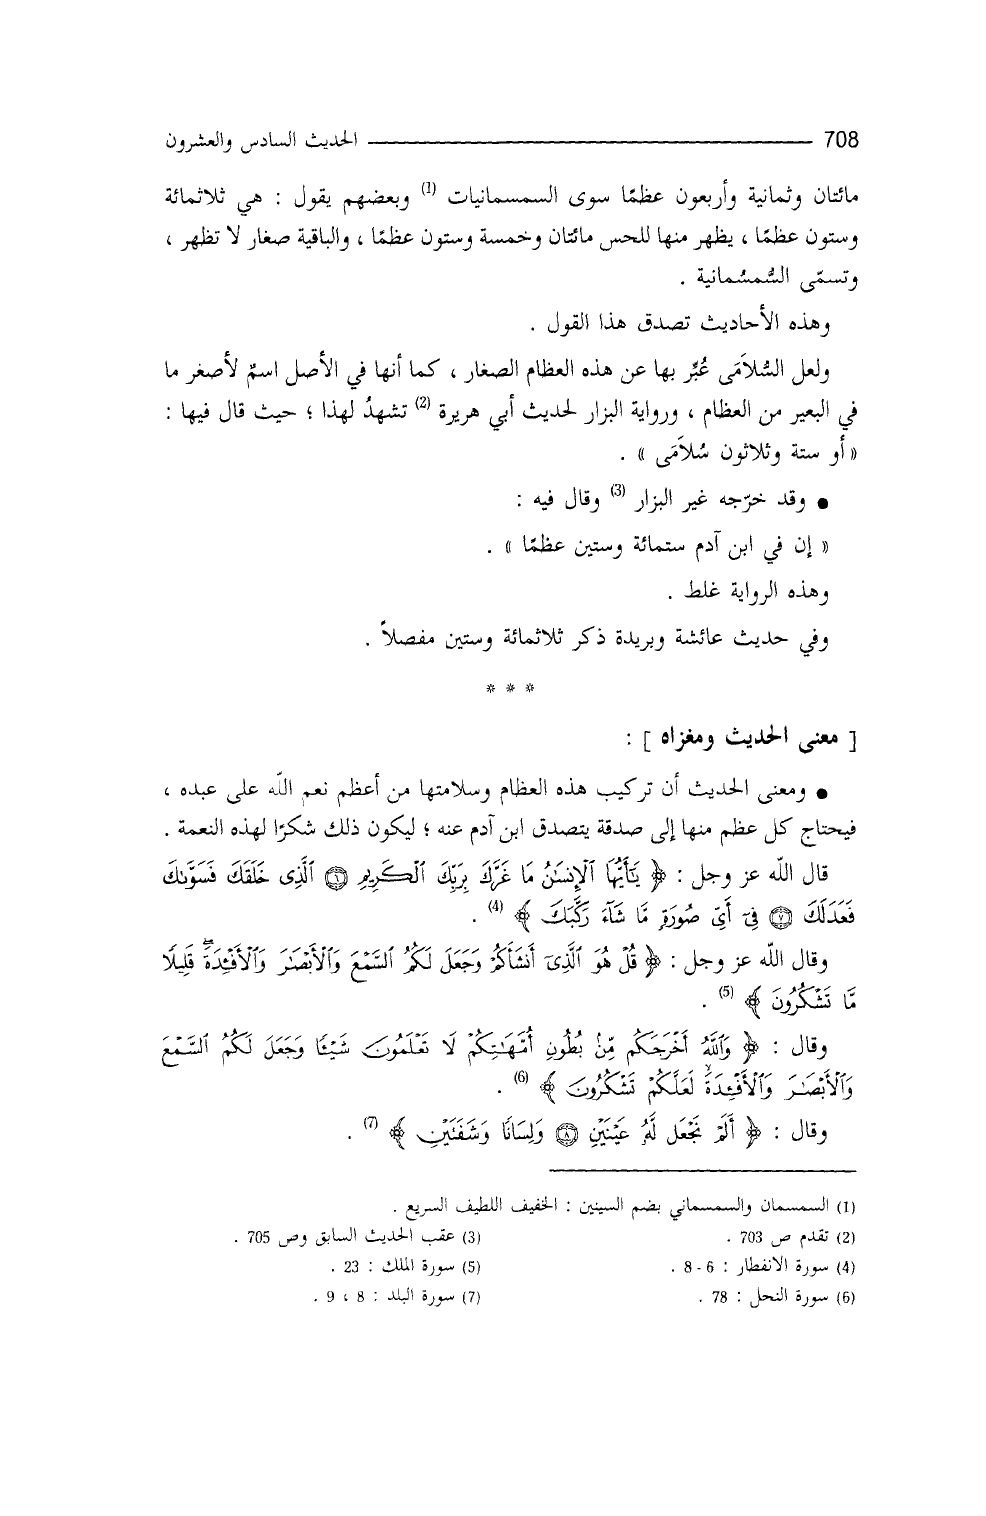 708 الحديث السادس والعشرون
مائتان وثمانية وأربعون عظمًا سوى السمسمانيات (1) وبعضهم يقول : هي ثلاثمائة
وستون عظمًا ، يظهر منها للحس مائتان وخمسة وستون عظمًا ، والباقية صغار لا تظهر ،
وتسمّى السُّمسُمانية .
وهذه الأحاديث تصدق هذا القول .
ولعل السُّلاَمَى عُبِّر بها عن هذه العظام الصغار ، كما أنها في الأصل اسمٌ لأصغر ما
في البعير من العظام ، ورواية البزار لحديث أبي هريرة (2) تشهدُ لهذا ؛ حيث قال فيها :
« أو ستة وثلاثون سُلاَمَى » .
● وقد خرّجه غير البزار (3) وقال فيه :
« إن في ابن آدم ستمائة وستين عظمًا » .
وهذه الرواية غلط .
وفي حديث عائشة وبريدة ذكر ثلاثمائة وستين مفصلاً .
* * *
[ معنى الحديث ومغزاه ] :
● ومعنى الحديث أن تركيب هذه العظام وسلامتها من أعظم نعم اللّه على عبده ،
فيحتاج كل عظم منها إلى صدقة يتصدق ابن آدم عنه ؛ ليكون ذلك شكرًا لهذه النعمة .
قال اللّه عز وجل : ﴿ يَٰٓأَيُّهَا ٱلْإِنسَٰنُ مَا غَرَّكَ بِرَبِّكَ ٱلْكَرِيمِ ۝٦ ٱلَّذِى خَلَقَكَ فَسَوَّىٰكَ
فَعَدَلَكَ ۝٧ فِىٓ أَىِّ صُورَةٍ مَّا شَآءَ رَكَّبَكَ ﴾ (4) .
وقال اللّه عز وجل : ﴿ قُلْ هُوَ ٱلَّذِىٓ أَنشَأَكُمْ وَجَعَلَ لَكُمُ ٱلسَّمْعَ وَٱلْأَبْصَٰرَ وَٱلْأَفْـِٔدَةَ ۖ قَلِيلًا
مَّا تَشْكُرُونَ ﴾ (5) .
وقال : ﴿ وَٱللَّهُ أَخْرَجَكُم مِّنۢ بُطُونِ أُمَّهَٰتِكُمْ لَا تَعْلَمُونَ شَيْـًٔا وَجَعَلَ لَكُمُ ٱلسَّمْعَ
وَٱلْأَبْصَٰرَ وَٱلْأَفْـِٔدَةَ ۙ لَعَلَّكُمْ تَشْكُرُونَ ﴾ (6) .
وقال : ﴿ أَلَمْ نَجْعَل لَّهُۥ عَيْنَيْنِ ۝٨ وَلِسَانًا وَشَفَتَيْنِ ﴾ (7) .
(1) السمسمان والسمسماني بضم السينين : الخفيف اللطيف السريع .
(2) تقدم ص 703 . (3) عقب الحديث السابق وص 705 .
(4) سورة الانفطار : 6 - 8 . (5) سورة الملك : 23 .
(6) سورة النحل : 78 . (7) سورة البلد : 8 ، 9 .